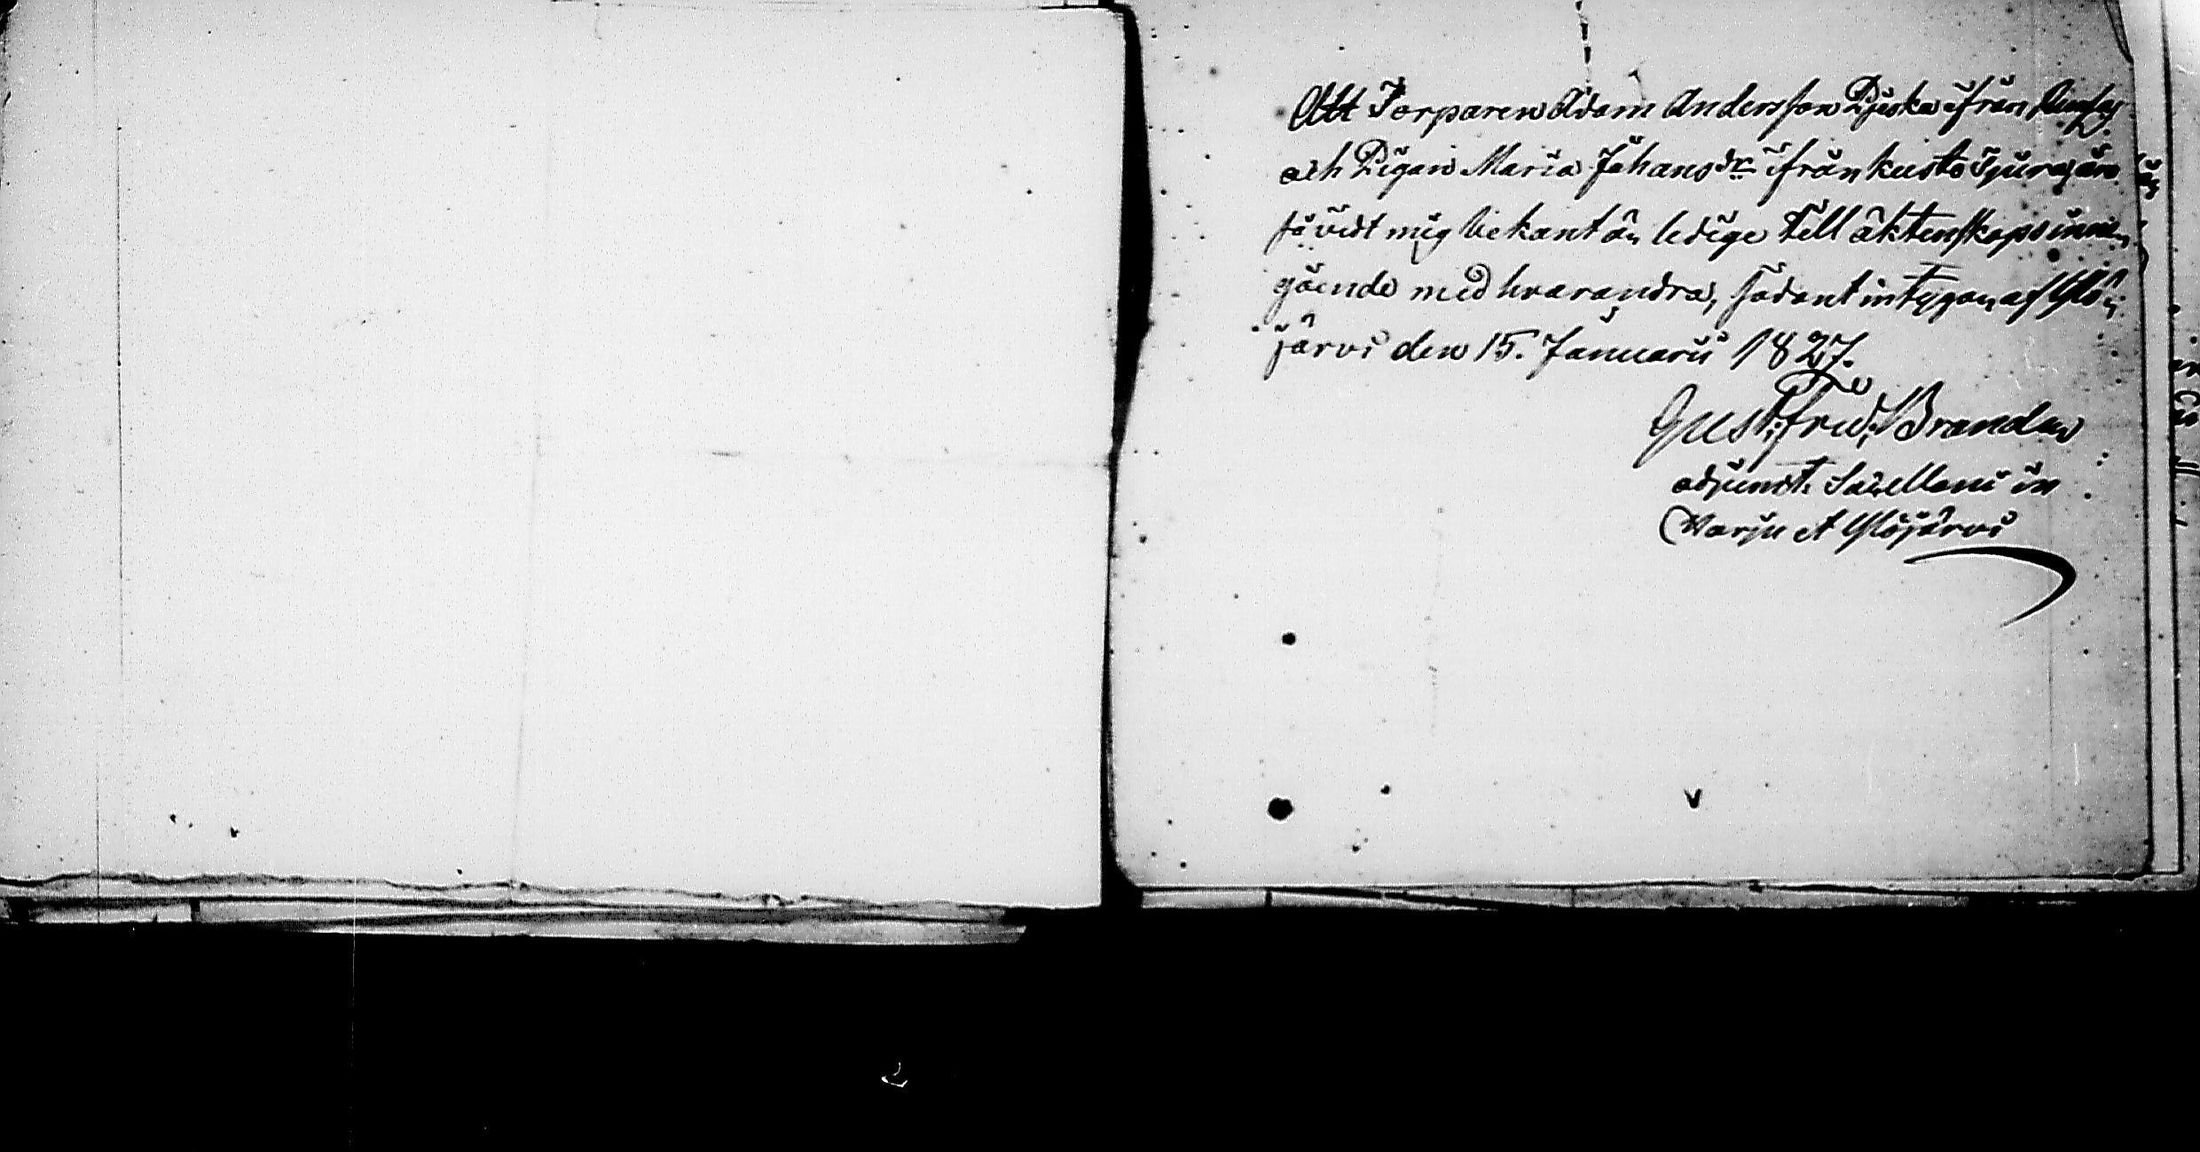 Att Torparen Adam Andersson Pjuska ifrån
och Pigan Maria Johansdr ifrån kusto Tjura, äro
såvidt mig bekant är ledige till äktenskaps inne-
gående med hvarandra, sådant intygan af Ylö-
järvi den 15. Januarii 1827.
Gust: Fred: Brander
adjunct. Sacellani in
Harju et Ylöjärvi